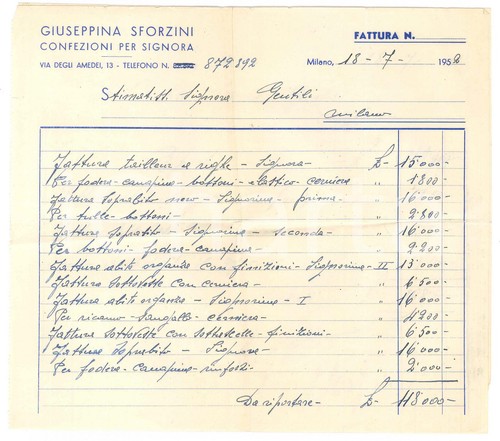 GIUSEPPINA SFORZINI
CONFEZIONI PER SIGNORA
VIA DEGLI AMEDEI, 13 - TELEFONO N. 872892
FATTURA N.
Milano, 18-7-1952
Stimatiss. Signora Gentili
Milano
Fattura tailleur a righe - Signora - £- 15000-
Per fodera - canapino - bottoni - elastico - cerniera " 1800-
Fattura soprabito nero - Signorina - prima - " 16000-
Per tulle - bottoni - " 2.800-
Fattura soprabito - Signorina - seconda - " 16000-
Per bottoni - fodera - canapina - " 2200-
Fattura abito organza con finizioni - Signorina - II " 13000-
Fattura sottoveste con cerniera - " 6500-
Fattura abito organza - Signorina - I " 16000-
Per ricamo - Sangallo - cerniera - " 4200-
Fattura sottoveste con finizioni - " 6500-
Fattura soprabito - Signora - " 16000-
Per fodera - canapina - rinforzi - " 2000-
Da riportare - £- 118000-